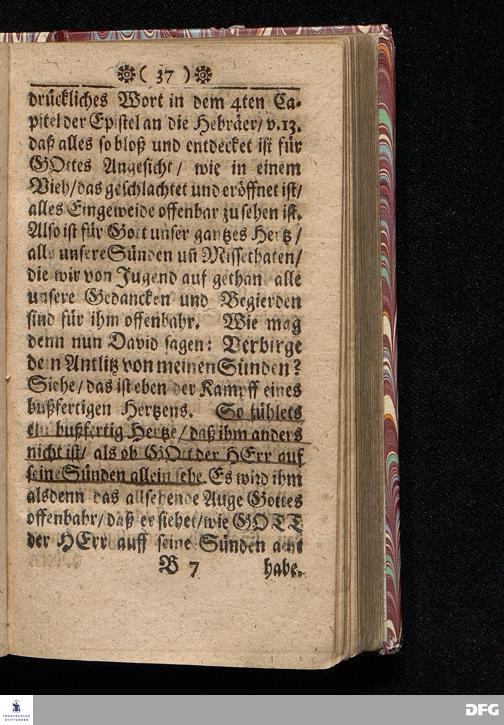 ( 37 )
drückliches Wort in dem 4ten Ca-
pitel der Epistel an die Hebräer/ v. 13.
daß alles so bloß und entdecket ist für
GOttes Angesicht/ wie in einem
Vieh/ das geschlachtet und eröffnet ist/
alles Eingeweide offenbar zu sehen ist.
Also ist für Gott unser gantzes Hertz/
alle unsere Sünden uñ Missethaten/
die wir von Jugend auf gethan alle
unsere Gedancken und Begierden
sind für ihm offenbahr. Wie mag
denn nun David sagen: Verbirge
dein Antlitz von meinen Sünden?
Siehe/ das ist eben der Kampff eines
bußfertigen Hertzens. So fühlets
ein bußfertig Hertze/ daß ihm anders
nicht ist/ als ob GOtt der HErr auf
seine Sünden allein sehe. Es wird ihm
alsdenn das allsehende Auge Gottes
offenbahr/ daß er siehet/ wie GOTT
der HErr auff seine Sünden acht
B 7 habe.
FRANCKESCHE STIFTUNGEN
DFG